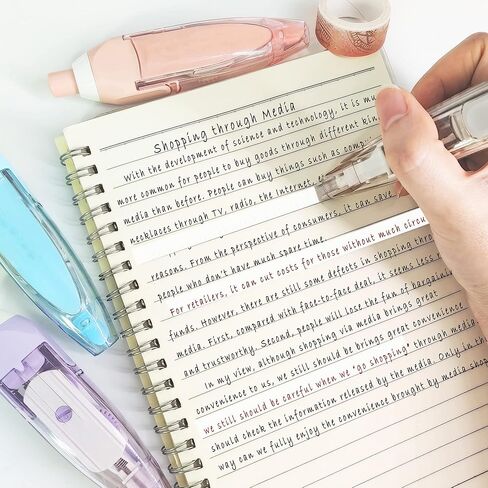 Shopping through Media
With the development of science and technology, it is mu
more common for people to buy goods through different kin
media than before. People can buy things such as comput
necklaces through TV, radio, the Internet, e
reasons. From the perspective of consumers, it can save
people who don't have much spare time.
For retailers, it can cut costs for those without much circu
funds. However, there are still some defects in shopping thro
media. First, compared with face-to-face deal, it seems less r
and trustworthy. Second, people will lose the fun of bargainin
In my view, although shopping via media brings great
convenience to us, we still should be brings great convenience
we still should be careful when we "go shopping" through media.
should check the information released by the media. Only in th
way can we fully enjoy the convenience brought by media shop